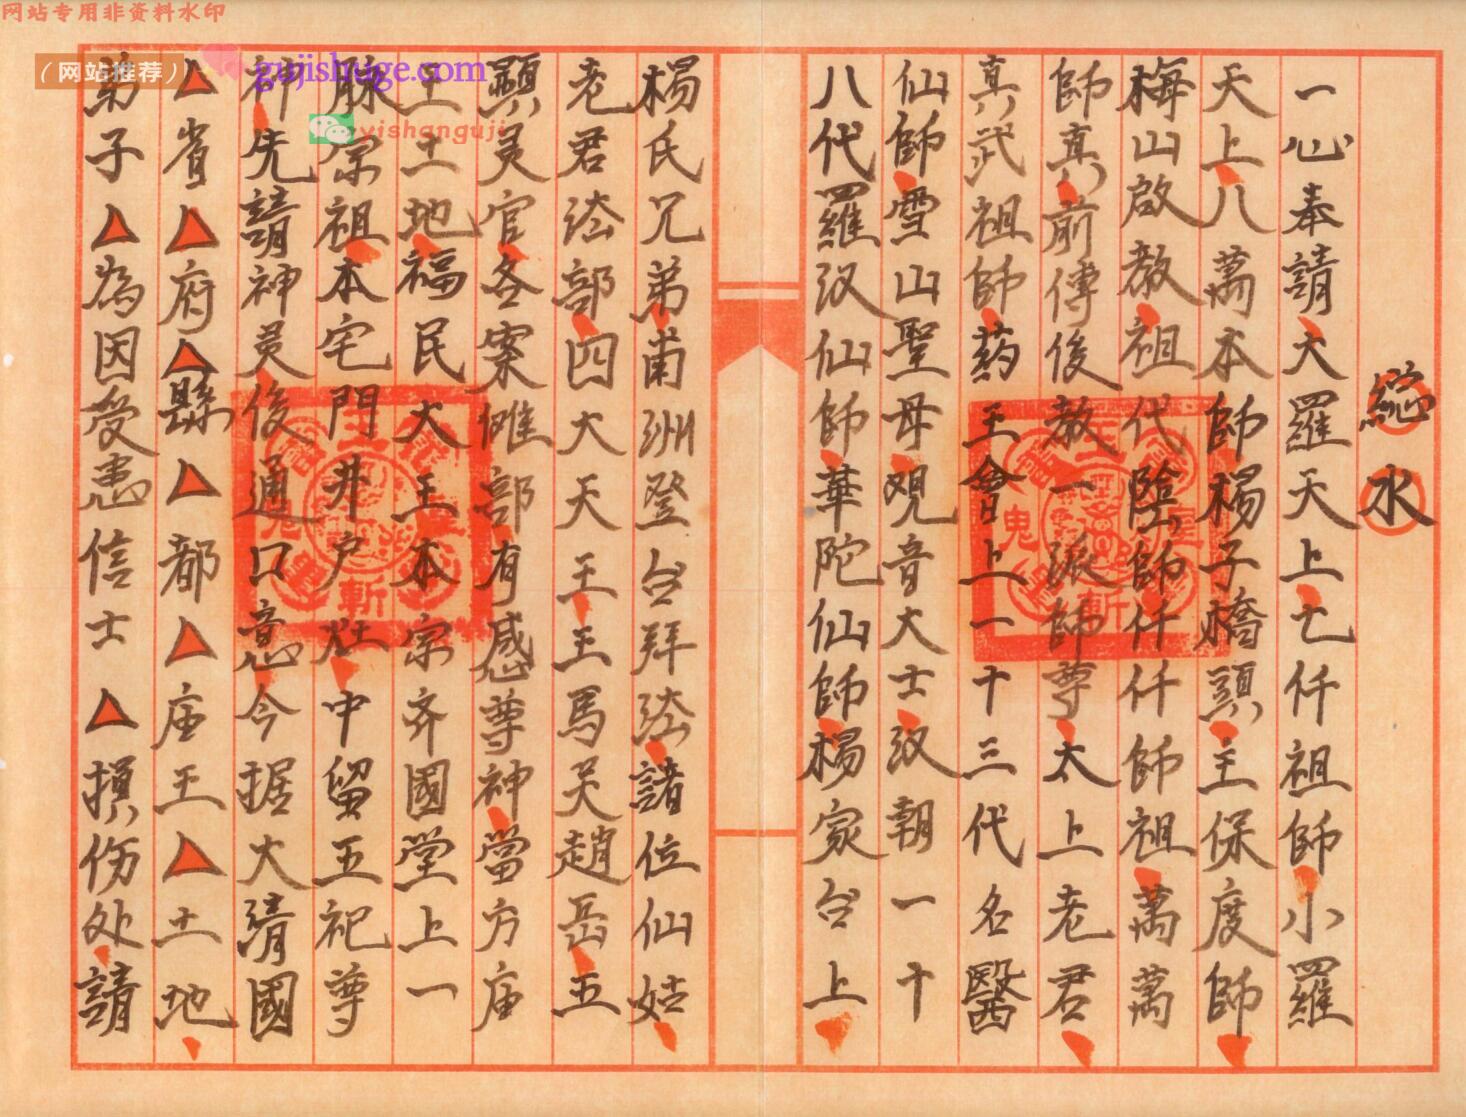 网站专用非资料水印
（网站推荐）
gujishuge.com
yishanguji
總水
一心奉請大羅天上七仟祖師小羅
天上八萬本師楊子橋頭主保度師
梅山啟教祖代陰師仟仟師祖萬萬
師真前傳後教一派師尊太上老君
真武祖師药王會上一十三代名醫
仙師雪山聖母观音大士汉朝一十
八代羅汉仙師華陀仙師楊家台上
楊氏兄弟甫洲登台拜法諸位仙姑
老君法部四大天王王馬灵趙岳五
顯灵官各案雄部有感尊神當方庙
王土地福民大王本宗齐國堂上一
脉宗祖本宅門井户灶中留五祀尊
神先請神灵後通口意今据大清國
△省△府△縣△都△庙王△土地
弟子△為因受患信士△損伤处請